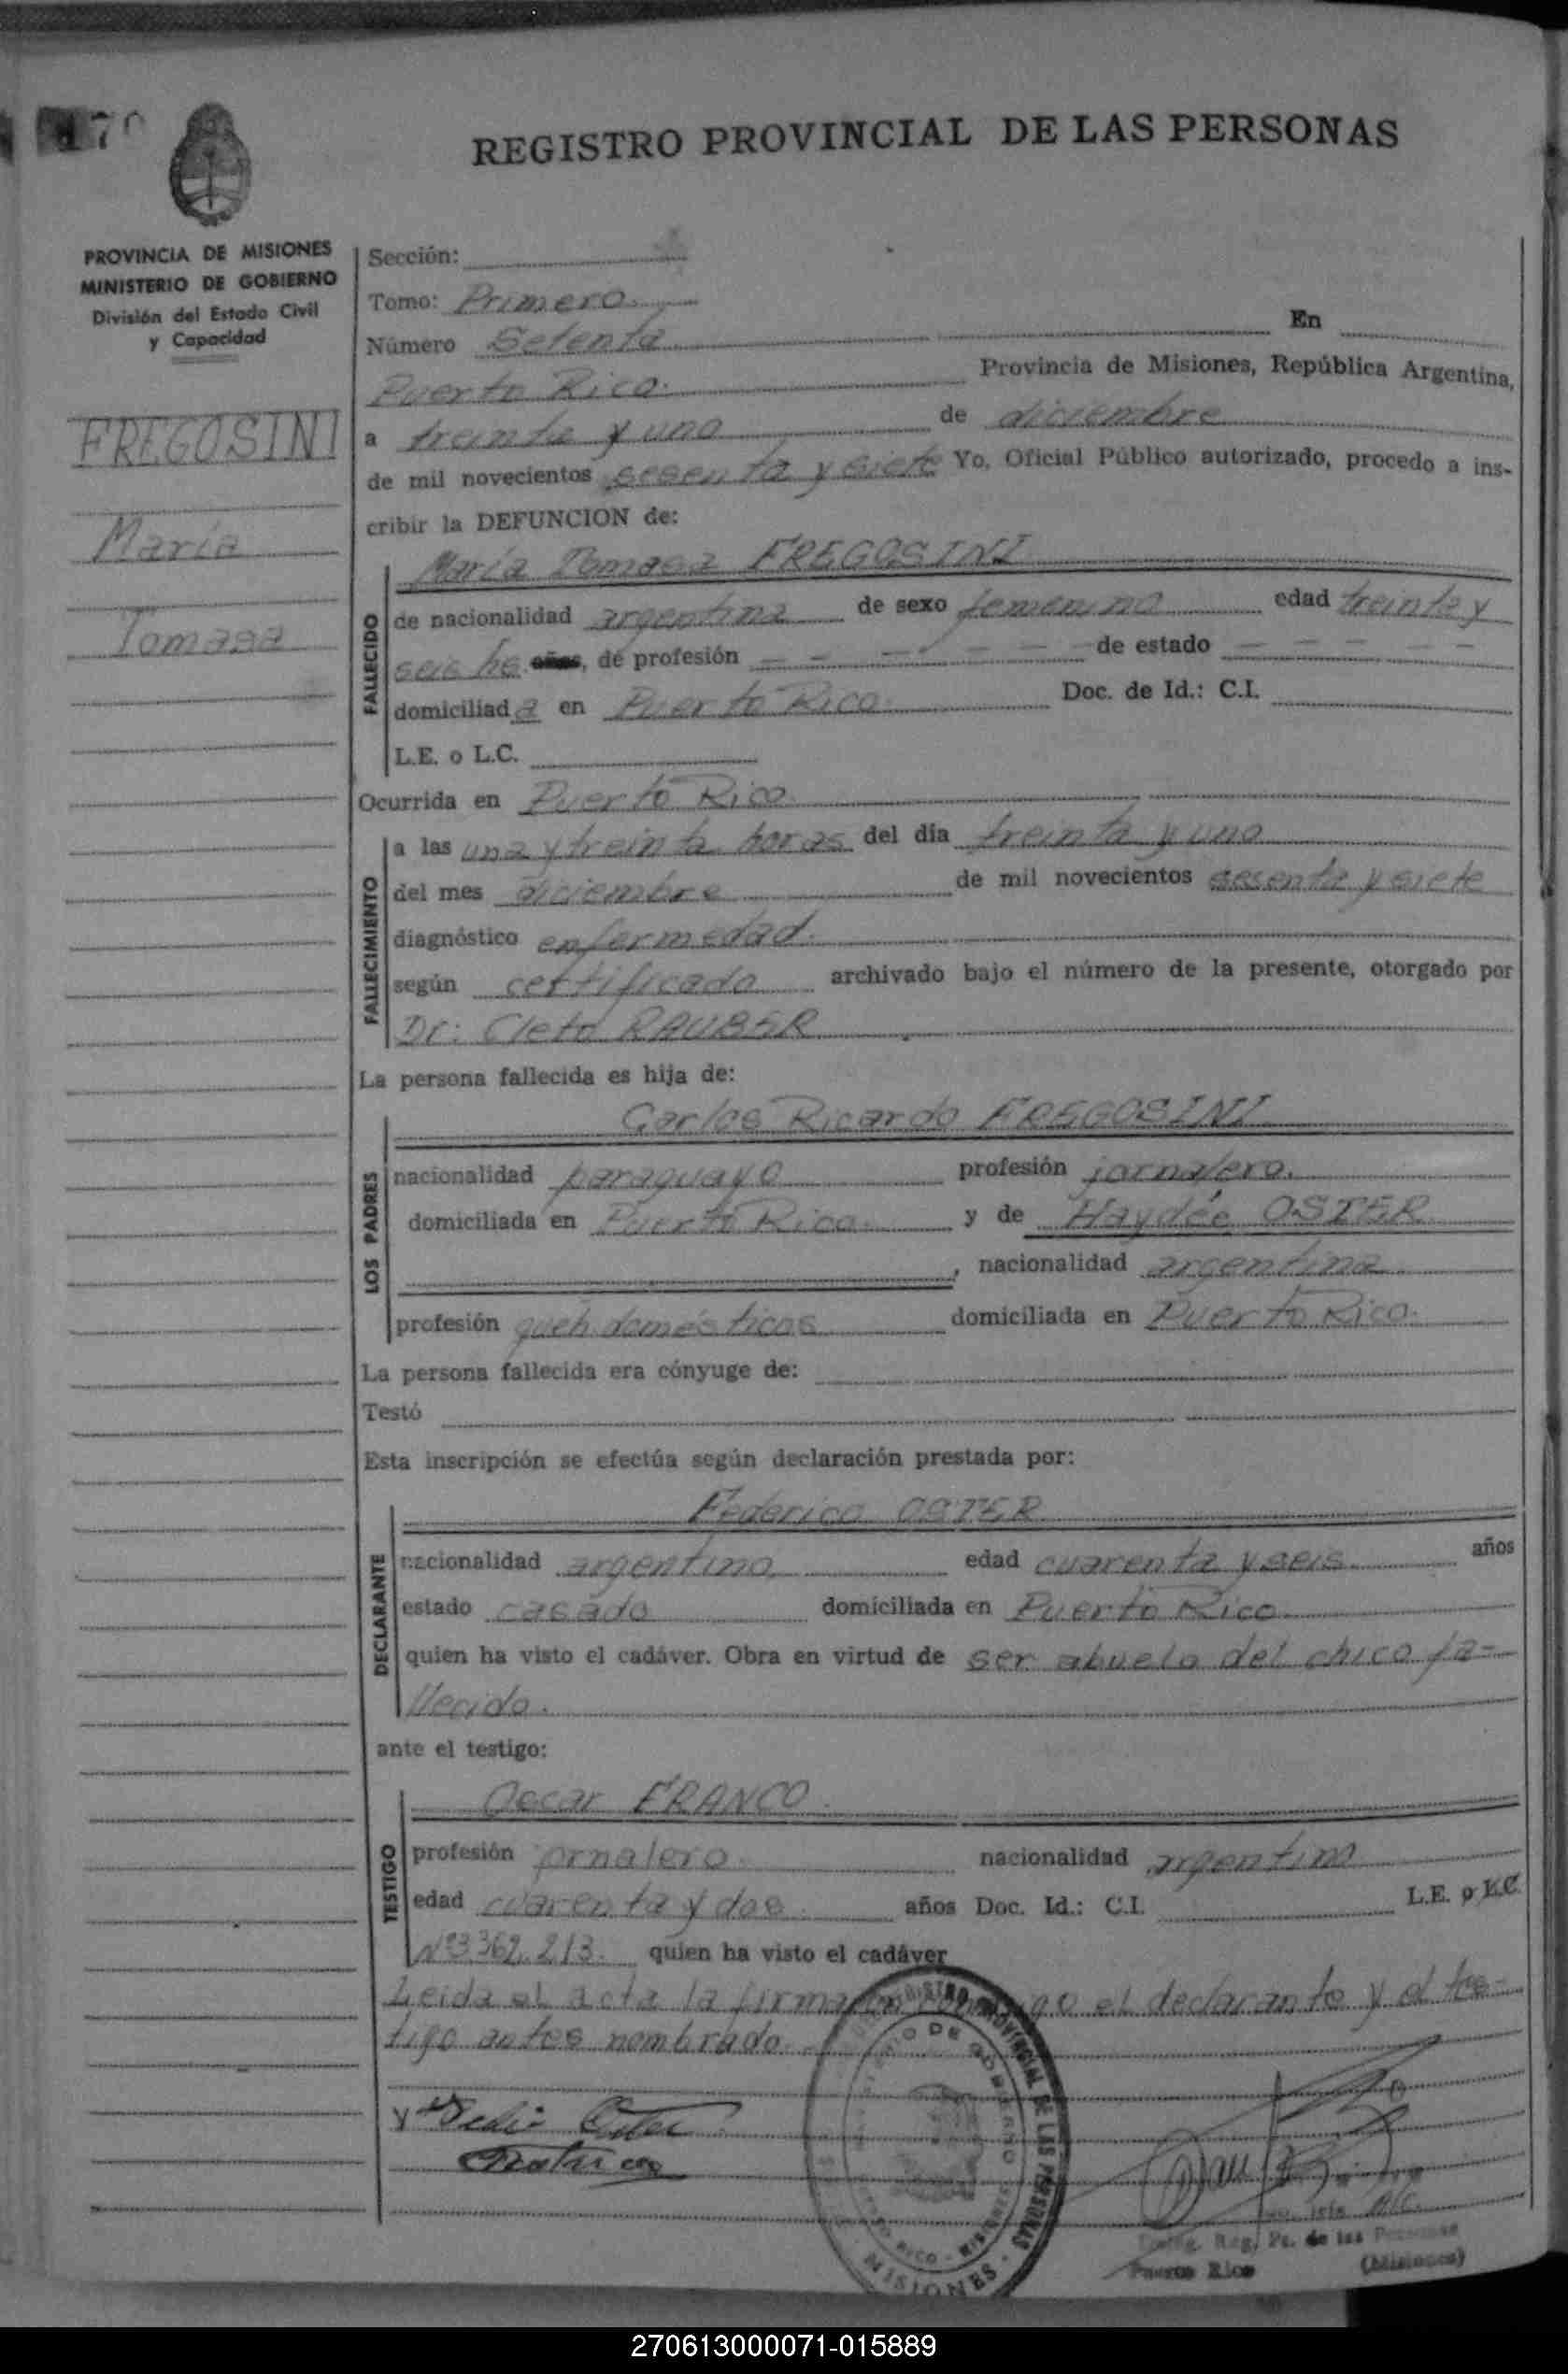 70
REGISTRO PROVINCIAL DE LAS PERSONAS
PROVINCIA DE MISIONES
MINISTERIO DE GOBIERNO
División del Estado Civil
y Capacidad
FREGOSINI
María
Tomasa
Sección:
Tomo: Primero
Número Setenta En
Puerto Rico. Provincia de Misiones, República Argentina,
a treinta y uno de diciembre
de mil novecientos sesenta y siete Yo, Oficial Público autorizado, procedo a ins-
cribir la DEFUNCION de:
María Tomasa FREGOSINI
FALLECIDO
de nacionalidad argentina de sexo femenino edad treinta y
seis hs. años, de profesión - - - - - - de estado - - - -
domiciliad a en Puerto Rico. Doc. de Id.: C.I.
L.E. o L.C.
Ocurrida en Puerto Rico.
FALLECIMIENTO
a las una y treinta horas del día treinta y uno
del mes diciembre de mil novecientos sesenta y siete
diagnóstico enfermedad.
según certificado archivado bajo el número de la presente, otorgado por
Dr: Cleto RAUBER
La persona fallecida es hija de:
Carlos Ricardo FREGOSINI
LOS PADRES
nacionalidad paraguayo profesión jornalero.
domiciliada en Puerto Rico. y de Haydée OSTER
, nacionalidad argentina
profesión queh. domésticos domiciliada en Puerto Rico.
La persona fallecida era cónyuge de:
Testó
Esta inscripción se efectúa según declaración prestada por:
Federico OSTER
DECLARANTE
nacionalidad argentino edad cuarenta y seis años
estado casado domiciliada en Puerto Rico
quien ha visto el cadáver. Obra en virtud de ser abuelo del chico fa-
llecido.
ante el testigo:
Oscar FRANCO.
TESTIGO
profesión jornalero. nacionalidad argentino
edad cuarenta y dos. años Doc. Id.: C.I. L.E. o L.C.
Nº3.362.213. quien ha visto el cadáver
Leida el acta la firman conmigo el declarante y el tes-
tigo antes nombrado.
REGISTRO PROVINCIAL DE LAS PERSONAS
MINISTERIO DE GOBIERNO
PUERTO RICO - MISIONES
MISIONES
Reg. Pr. de las Personas
Puerto Rico (Misiones)
270613000071-015889